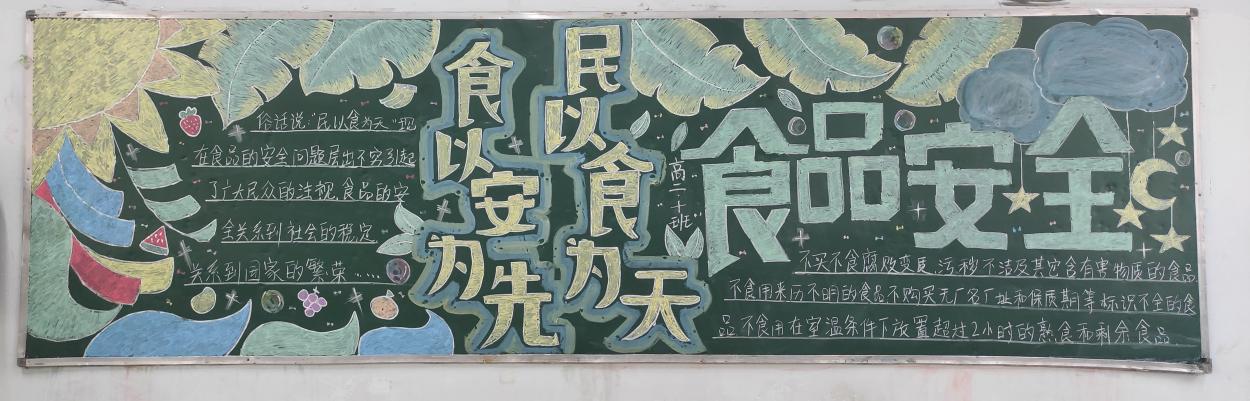 俗话说:"民以食为天"现
在食品的安全问题层出不穷引起
了广大民众的注视,食品的安
全关系到社会的稳定
关系到国家的繁荣……
民以食为天
食以安为先
高二十班
食品安全
不买不食腐败变质、污秽不洁及其它含有害物质的食品
不食用来历不明的食品不购买无厂名厂址和保质期等标识不全的食
品不食用在室温条件下放置超过2小时的熟食和剩余食品